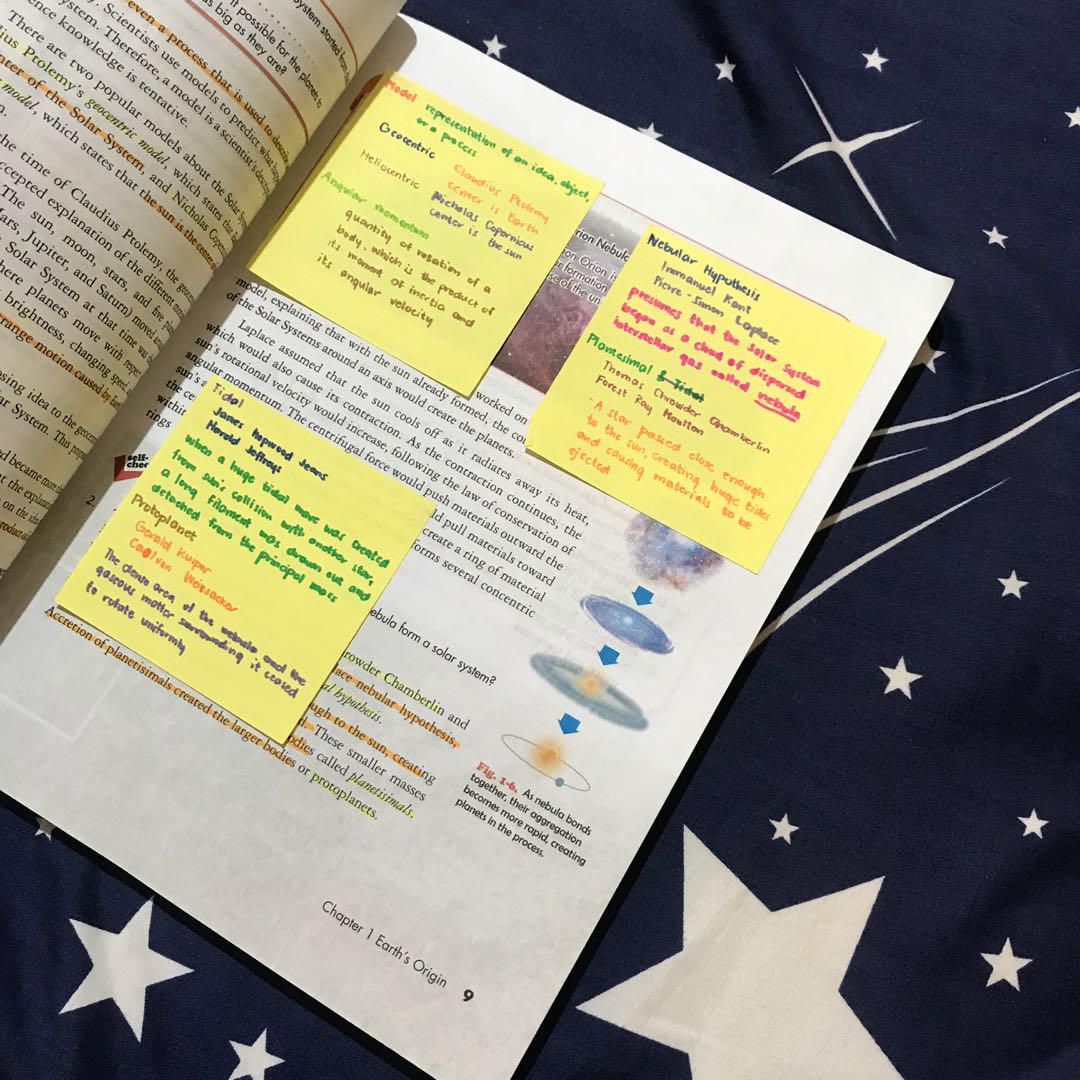 even a process that is used to
Scientists use models to predict what
system. Therefore, a model is a scientist's
ence knowledge is tentative.
There are two popular models about the Solar
Ptolemy's geocentric model, which states that
nter of the Solar System, and Nicholas
model, which states that the sun is the center
the time of Claudius Ptolemy, the
accepted explanation of the different
The sun, moon, stars, and five
Mars, Jupiter, and Saturn) moved
Solar System at that time was
here planets move with respect
brightness, changing speed
range motion caused by
osing idea to the
ar System. This
nd became more
system started from
it possible for the planets to
as big as they are?
Model representation of an idea, object,
or a process
Geocentric Claudius Ptlemy
center is Earth
Heliocentric Nicholas Copernicus
center is the sun
Angular momentum
quantity of rotation of a
body, which is the product of
its moment of inertia and
its angular velocity
rion Nebula
on Orion is
r formation
se of the un
Nebular Hypothesis
Immanuel Kant
Pierre-Simon Laplace
presumes that the Solar System
began as a cloud of dispersed
interstellar gas called nebula
Planesimal & Tidal
Thomas Chrowder Chamberlin
Forest Ray Moulton
- A star passed close enough
to the sun, creating huge tides
and causing materials to be
ejected
worked on
model, explaining that with the sun already formed, the co
of the Solar Systems around an axis would create the planets.
Laplace assumed that the sun cools off as it radiates away its heat,
which would also cause its contraction. As the contraction continues, the
sun's rotational velocity would increase, following the law of conservation of
angular momentum. The centrifugal force would push materials outward the
sun's
ld pull materials toward
the ce
create a ring of material
withi
forms several concentric
rings
self-
chec
2.
Tidal
James hopwood Jeans
Harold Jeffreys
when a huge tidal wave was created
from sun's collision with another star,
a long filament was drawn out and
detached from the principal mass
Protoplanet
Gerald Kuiper
Carl von Weisacker
The dense area of the nebula and the
gaseous matter surrounding it ceased
to rotate uniformly
ebula form a solar system?
rowder Chamberlin and
ace nebular hypothesis,
al hypothesis.
ugh to the sun, creating
d. These smaller masses
odies called planetisimals.
Accretion of planetisimals created the larger bodies or protoplanets.
Fig. 1-6. As nebula bonds
together, their aggregation
becomes more rapid, creating
planets in the process.
Chapter 1 Earth's Origin 9